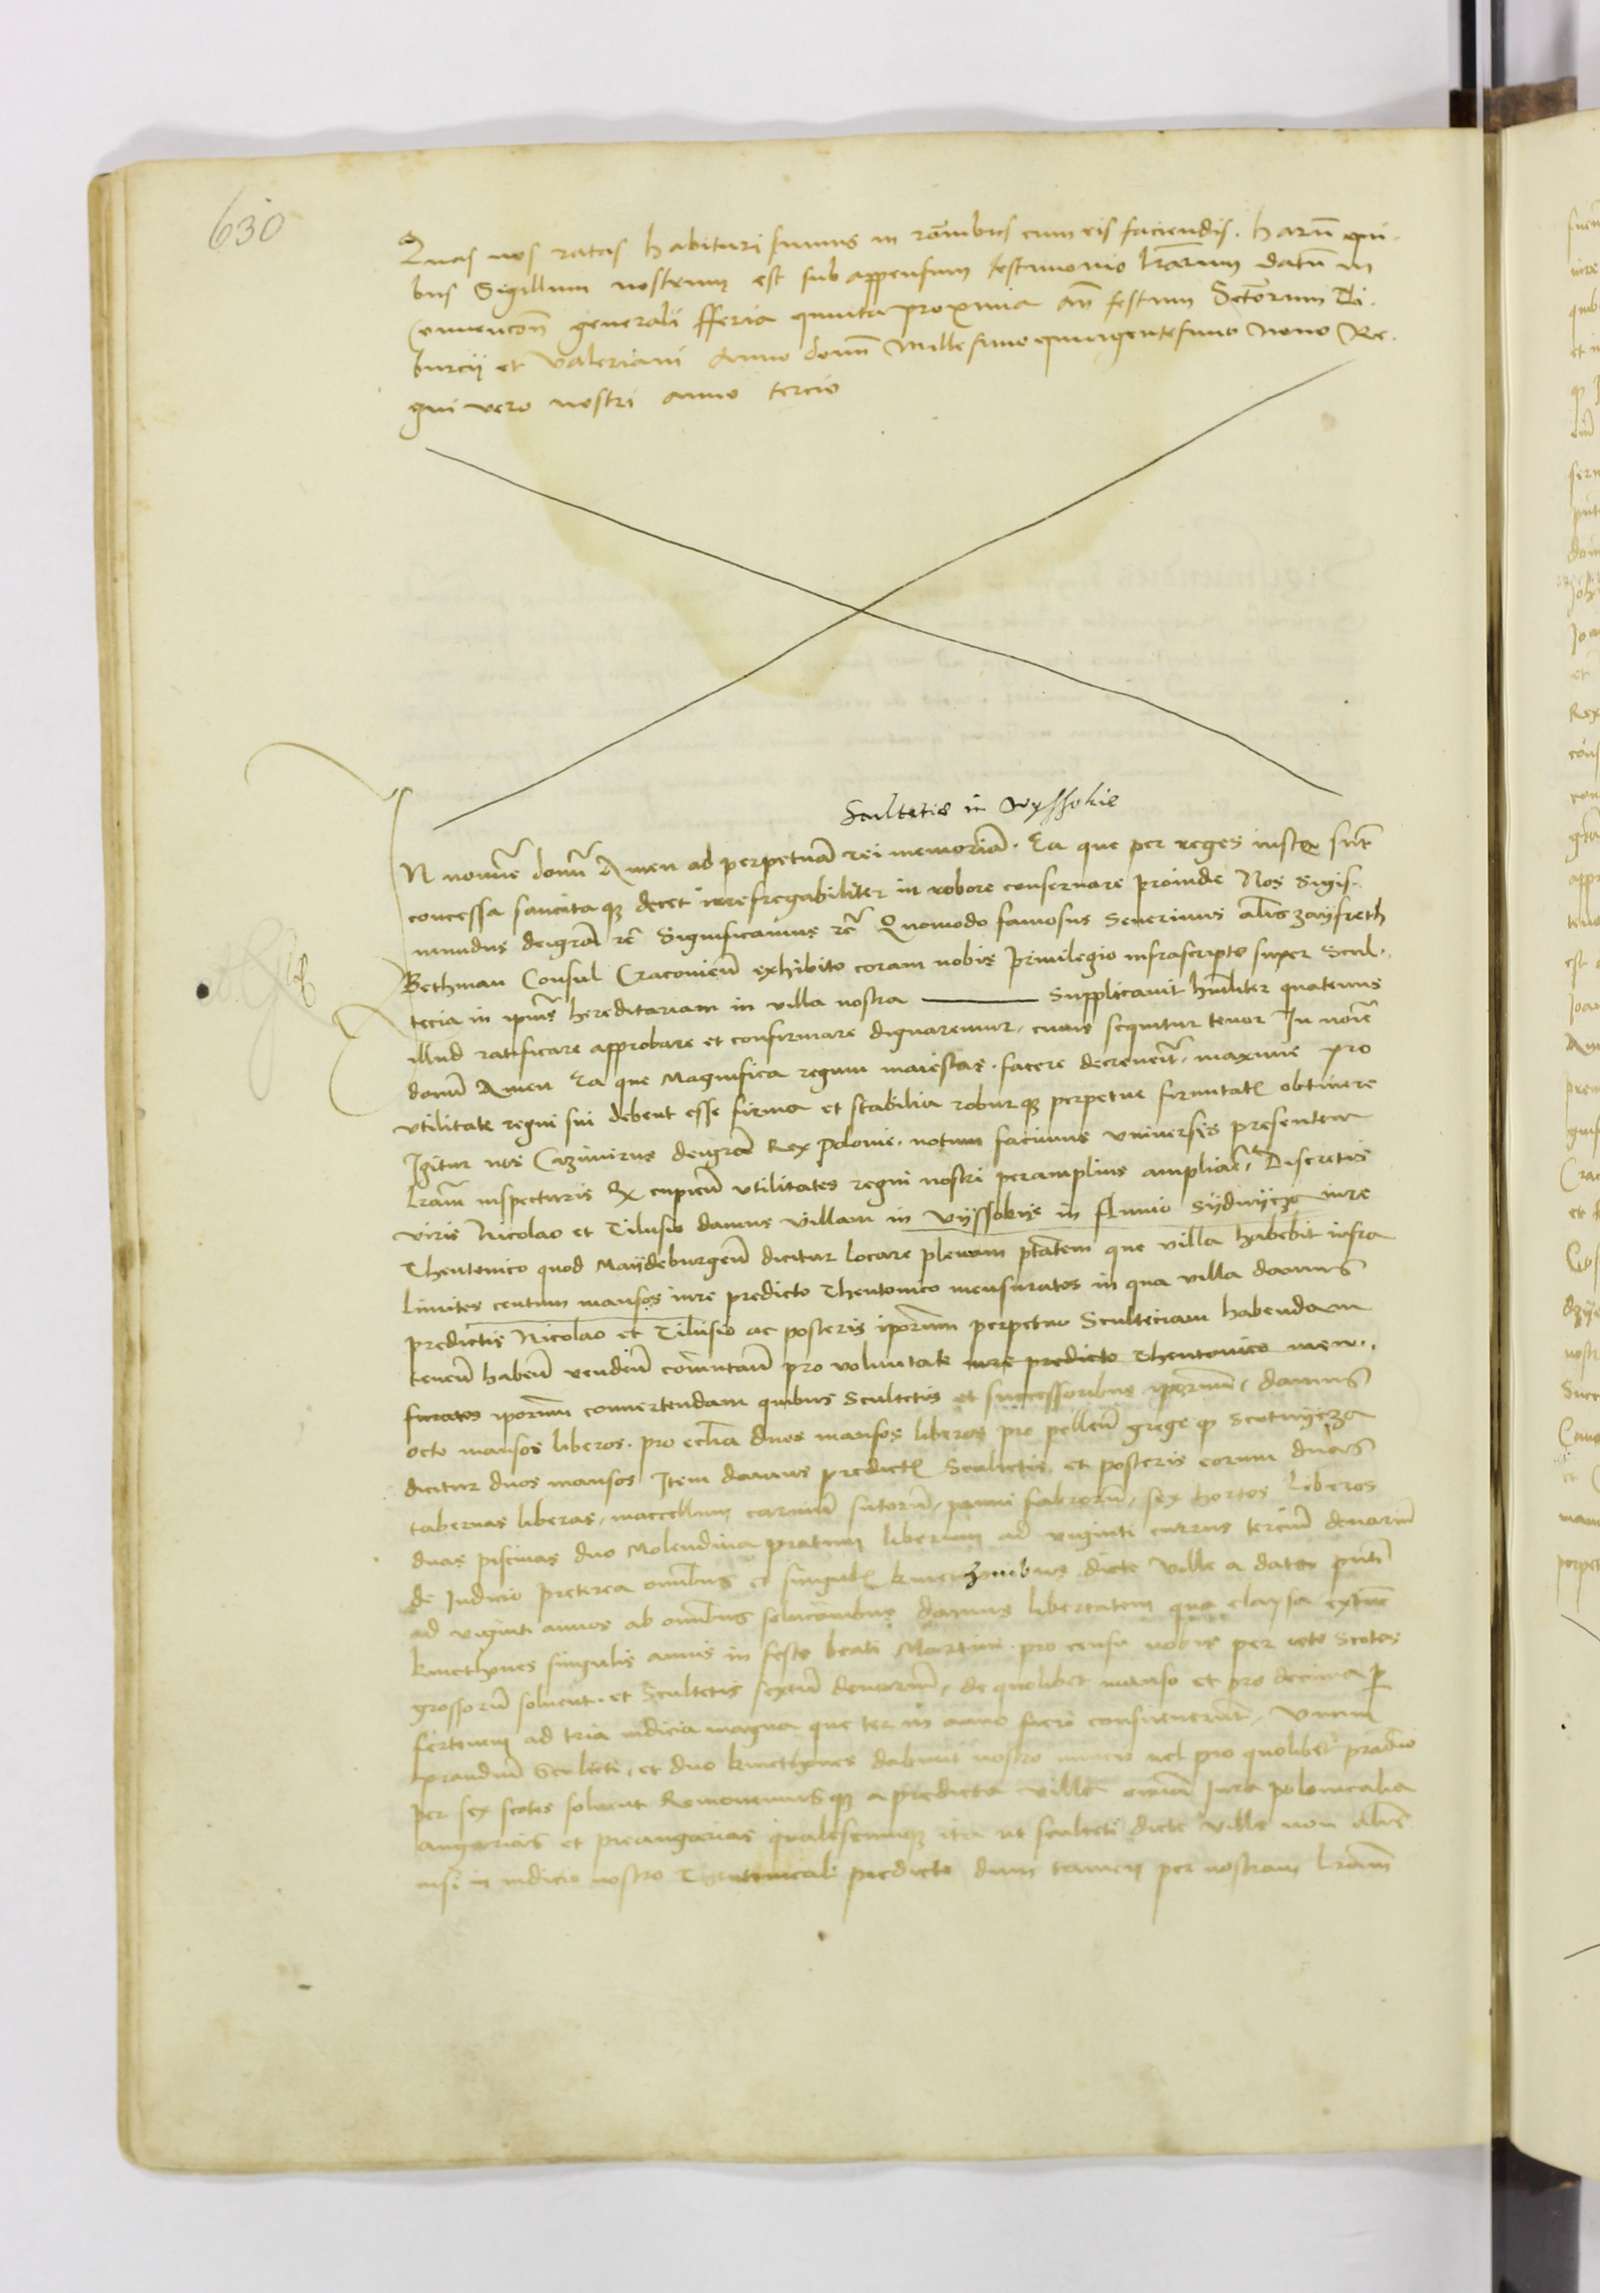 630
Quas nos ratas habituri sumus in racoīnibus cum eis faciendis. Harū qui-
bus Sigillum nostrum est sub appensum testimonio lrārum datū in
Convencōn generali fferia quinta proxima añ festum Sctōrum Ti-
burcij et Valeriani Anno domī Millesimo quingentesimo Nono Re-
gni vero nostri anno tercio
Scultetie in Wyssokie
IN nomīe domī Amen ad perpetuā rei memoriā. Ea que per reges iuste sūt
concessa sancitaqȝ decet irrefregabiliter in robore conservare proinde Nos Sigis-
mundus deigrā rē Significamus rē Quomodo famosus Severinus alīs zayfreth
Bethman Consul Cracovieñ exhibito coram nobis privilegio infrascripto super Scul-
tecia in ipīus hereditariam in villa nostra Supplicavit humīliter quatenus
illud ratificare approbare et confirmare dignaremur, cuius sequitur tenor In noīe
domī Amen Ea que Magnifica regum maiestas facere decreverīt, maxime pro
utilitate regni sui debent esse firma et stabilia roburqȝ perpetue firmitatꝭ obtinere
Igitur nos Cazimirus deigrā Rex Polonie notum facimus universis presentem
lrām inspecturis Qȝ cupieñ utilitates regni nostri peramplius ampliāre, Discretis
viris Nicolao et Tilusio damus villam in Vyssokye in fluvio Sydwycza iure
Theutonico quod Maydeburgeñ dicitur locare plenam ptātem que villa habebit infra
limites centum mansos iure predicto Theutonico mensuratos in qua villa damus
predictis Nicolao et Tilusio ac posteris ipōrum perpetuo Scultetiam habendam
teneñ habeñ vendeñ comutañ pro voluntate iure predicto Theutonico men-
suratos ipōrum convertendam quibus Scultetis et successoribus ipōrum, damus
octo mansos liberos, pro eccīa duos mansos liberos pro pellēn grege qȝ Scotnycza
dicitur duos mansos Item damus predictꝭ Scultetis et posteris eorum duas
tabernas liberas, maccellum carniū sutorū, panni fabrorū, sex hortos liberos
duas piscinas duo Molendina pratum liberum ad viginti currus terciū denariū
de Iudicio preterea omībus et singulꝭ kmethonibus dicte ville a dato pñti
ad viginti annos ab omībus solucoībus damus libertatem qua elapsa extūc
kmethones singulis annis in festo beati Martini pro censu nobis per octo Scotos
grossorū solvent. et Scultetis sextū denariū, de quolibet manso et pro decima ꝑ
fertonem ad tria iudicia magna que ter in anno fieri consueverūt, Unum
prandiū Sculteti, et duo kmethones dabunt nostro nuncio vel pro quolibet prandio
per sex scotos solvent Removemusqȝ a predicta villa omīa Iura polonicalia
angarias et preangarias qualescumqȝ ita ut sculteti dicte ville non alīs
nisi in iudicio nostro Theutonicali predicto dum tamen per nostram lrām